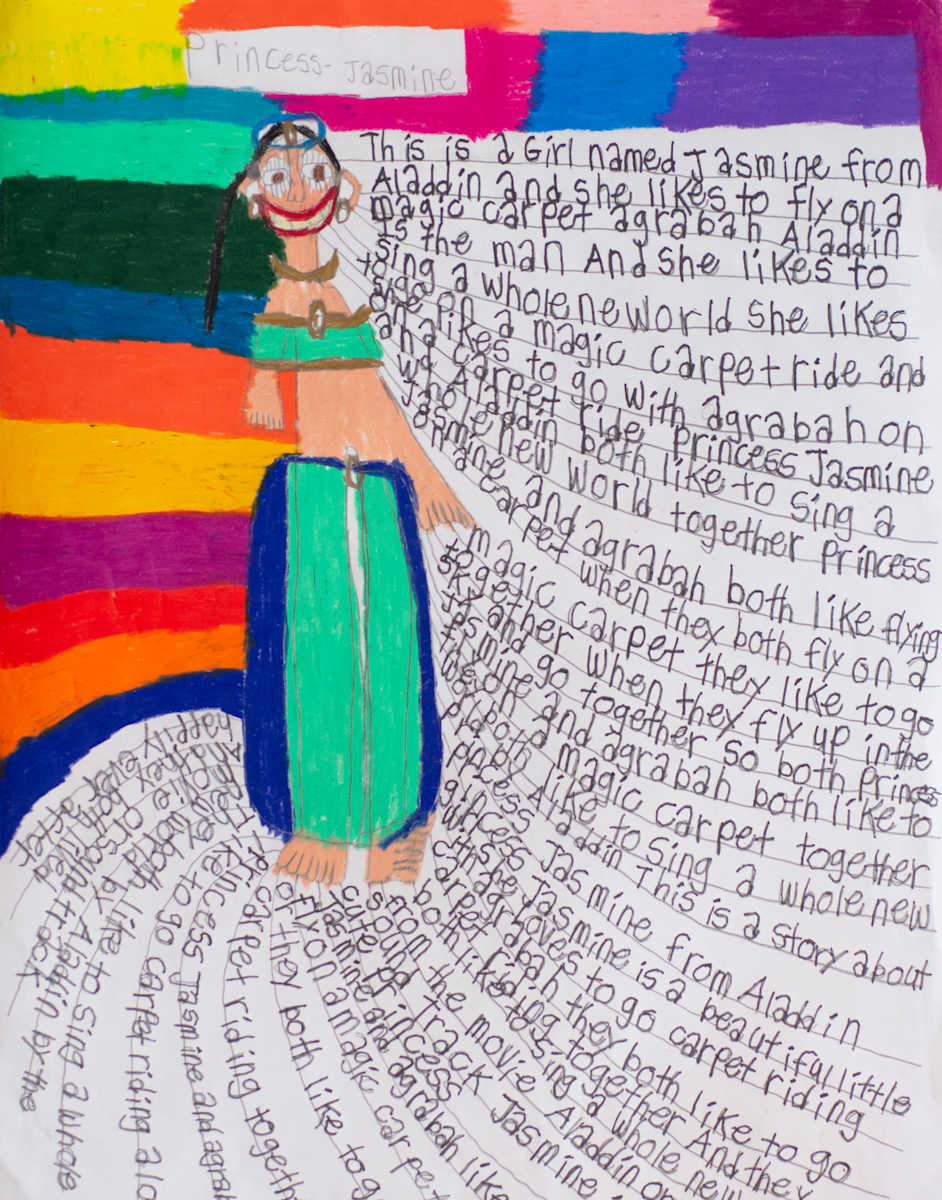 Princess-Jasmine
This is a Girl named Jasmine from
Aladdin and she likes to fly on a
magic carpet agrabah Aladdin
Is the man And She likes to
Sing a whole neworld She likes
to go on a magic carpet ride and
She likes to go with agrabah on
an a carpet ride, Princess Jasmine
Aladdin both like to Sing a
whole new world together Princess
Jasmine and agrabah both like flying
carpet when they both fly on a
magic carpet they like to go
together when they fly up in the
Sky and go together so both Princess
Jasmine and agrabah both like to
magic carpet together
both like to Sing a whole new
Aladdin This is a Story about
Princess Jasmine from Aladdin
Princess Jasmine is a beautiful little
girl she loves to go carpet riding
with agrabah they both like to go
carpet riding together And they
both like to sing a whole new
from the movie Aladdin on
sound track Jasmine
cute princess
Jasmine and agrabah like
fly on a magic carpet
of they both like to g
carpet riding togeth
Princess Jasmine and agrab
to go carpet riding alo
both like to Sing a whole
Sound track Aladdin by the
happily ever after